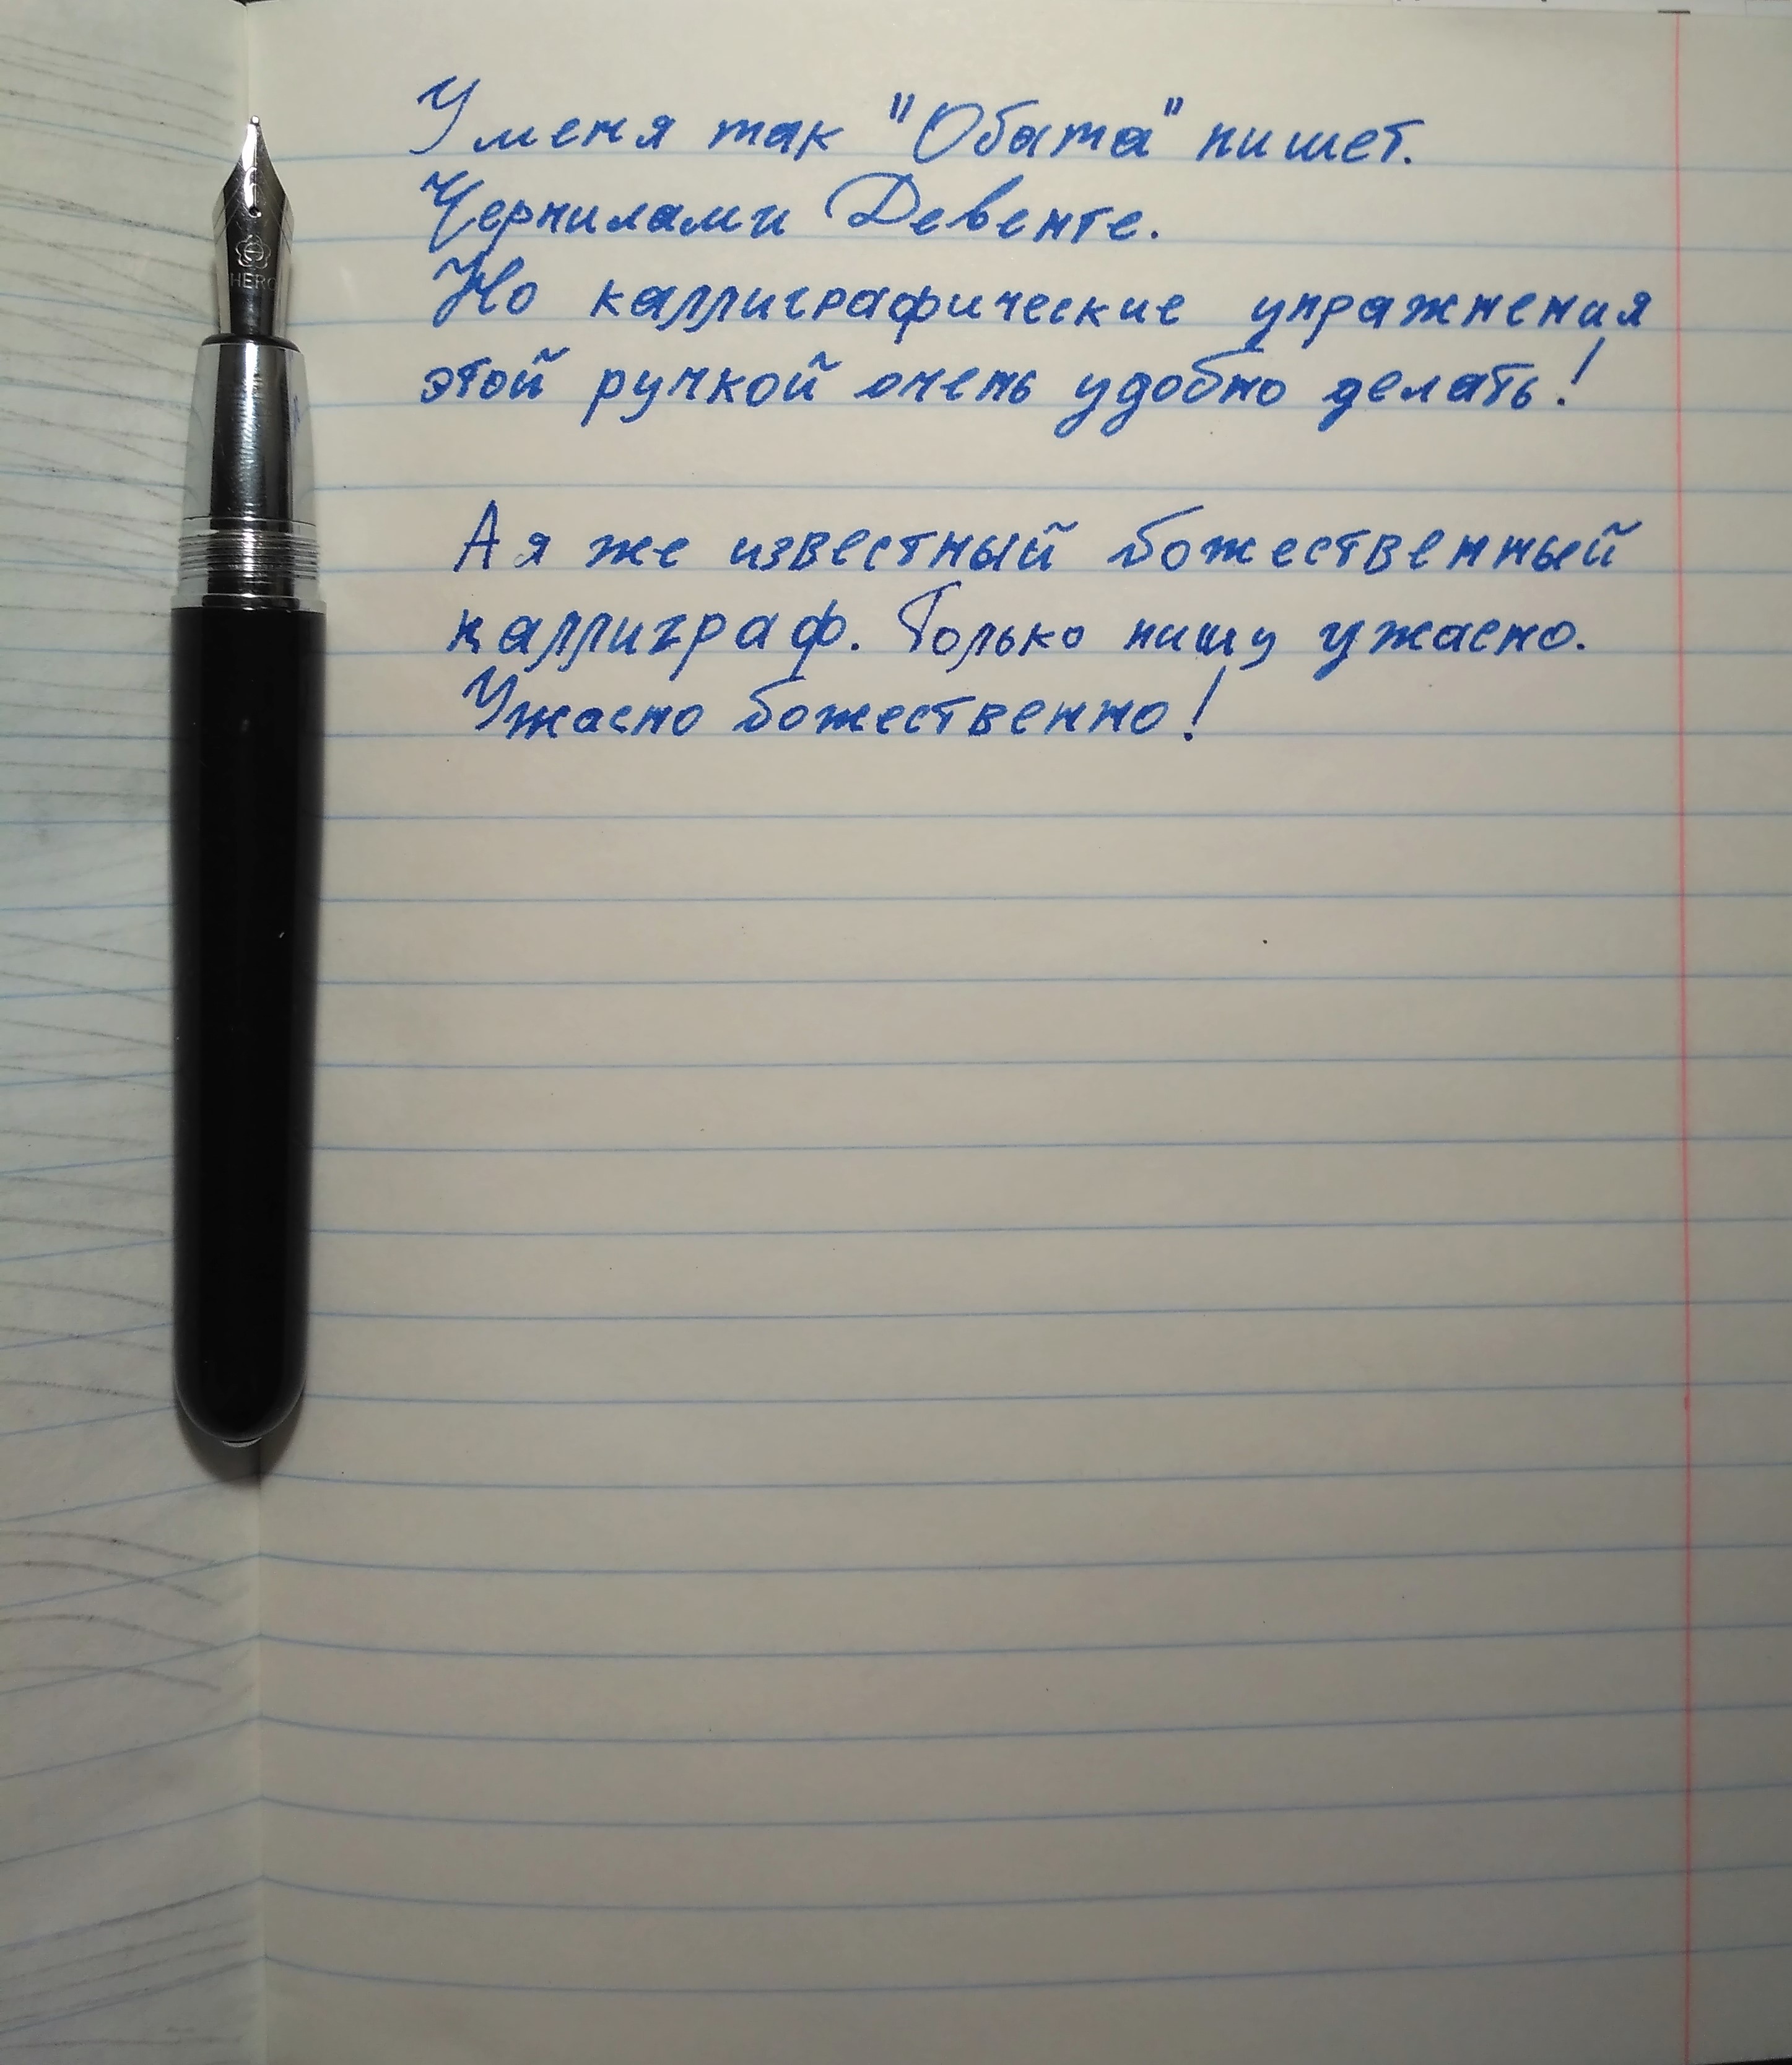 HERO
У меня так "Обата" пишет.
Чернилами Девенте.
Но каллиграфические упражнения
этой ручкой очень удобно делать!
А я же известный божественный
каллиграф. Только пишу ужасно.
Ужасно божественно!